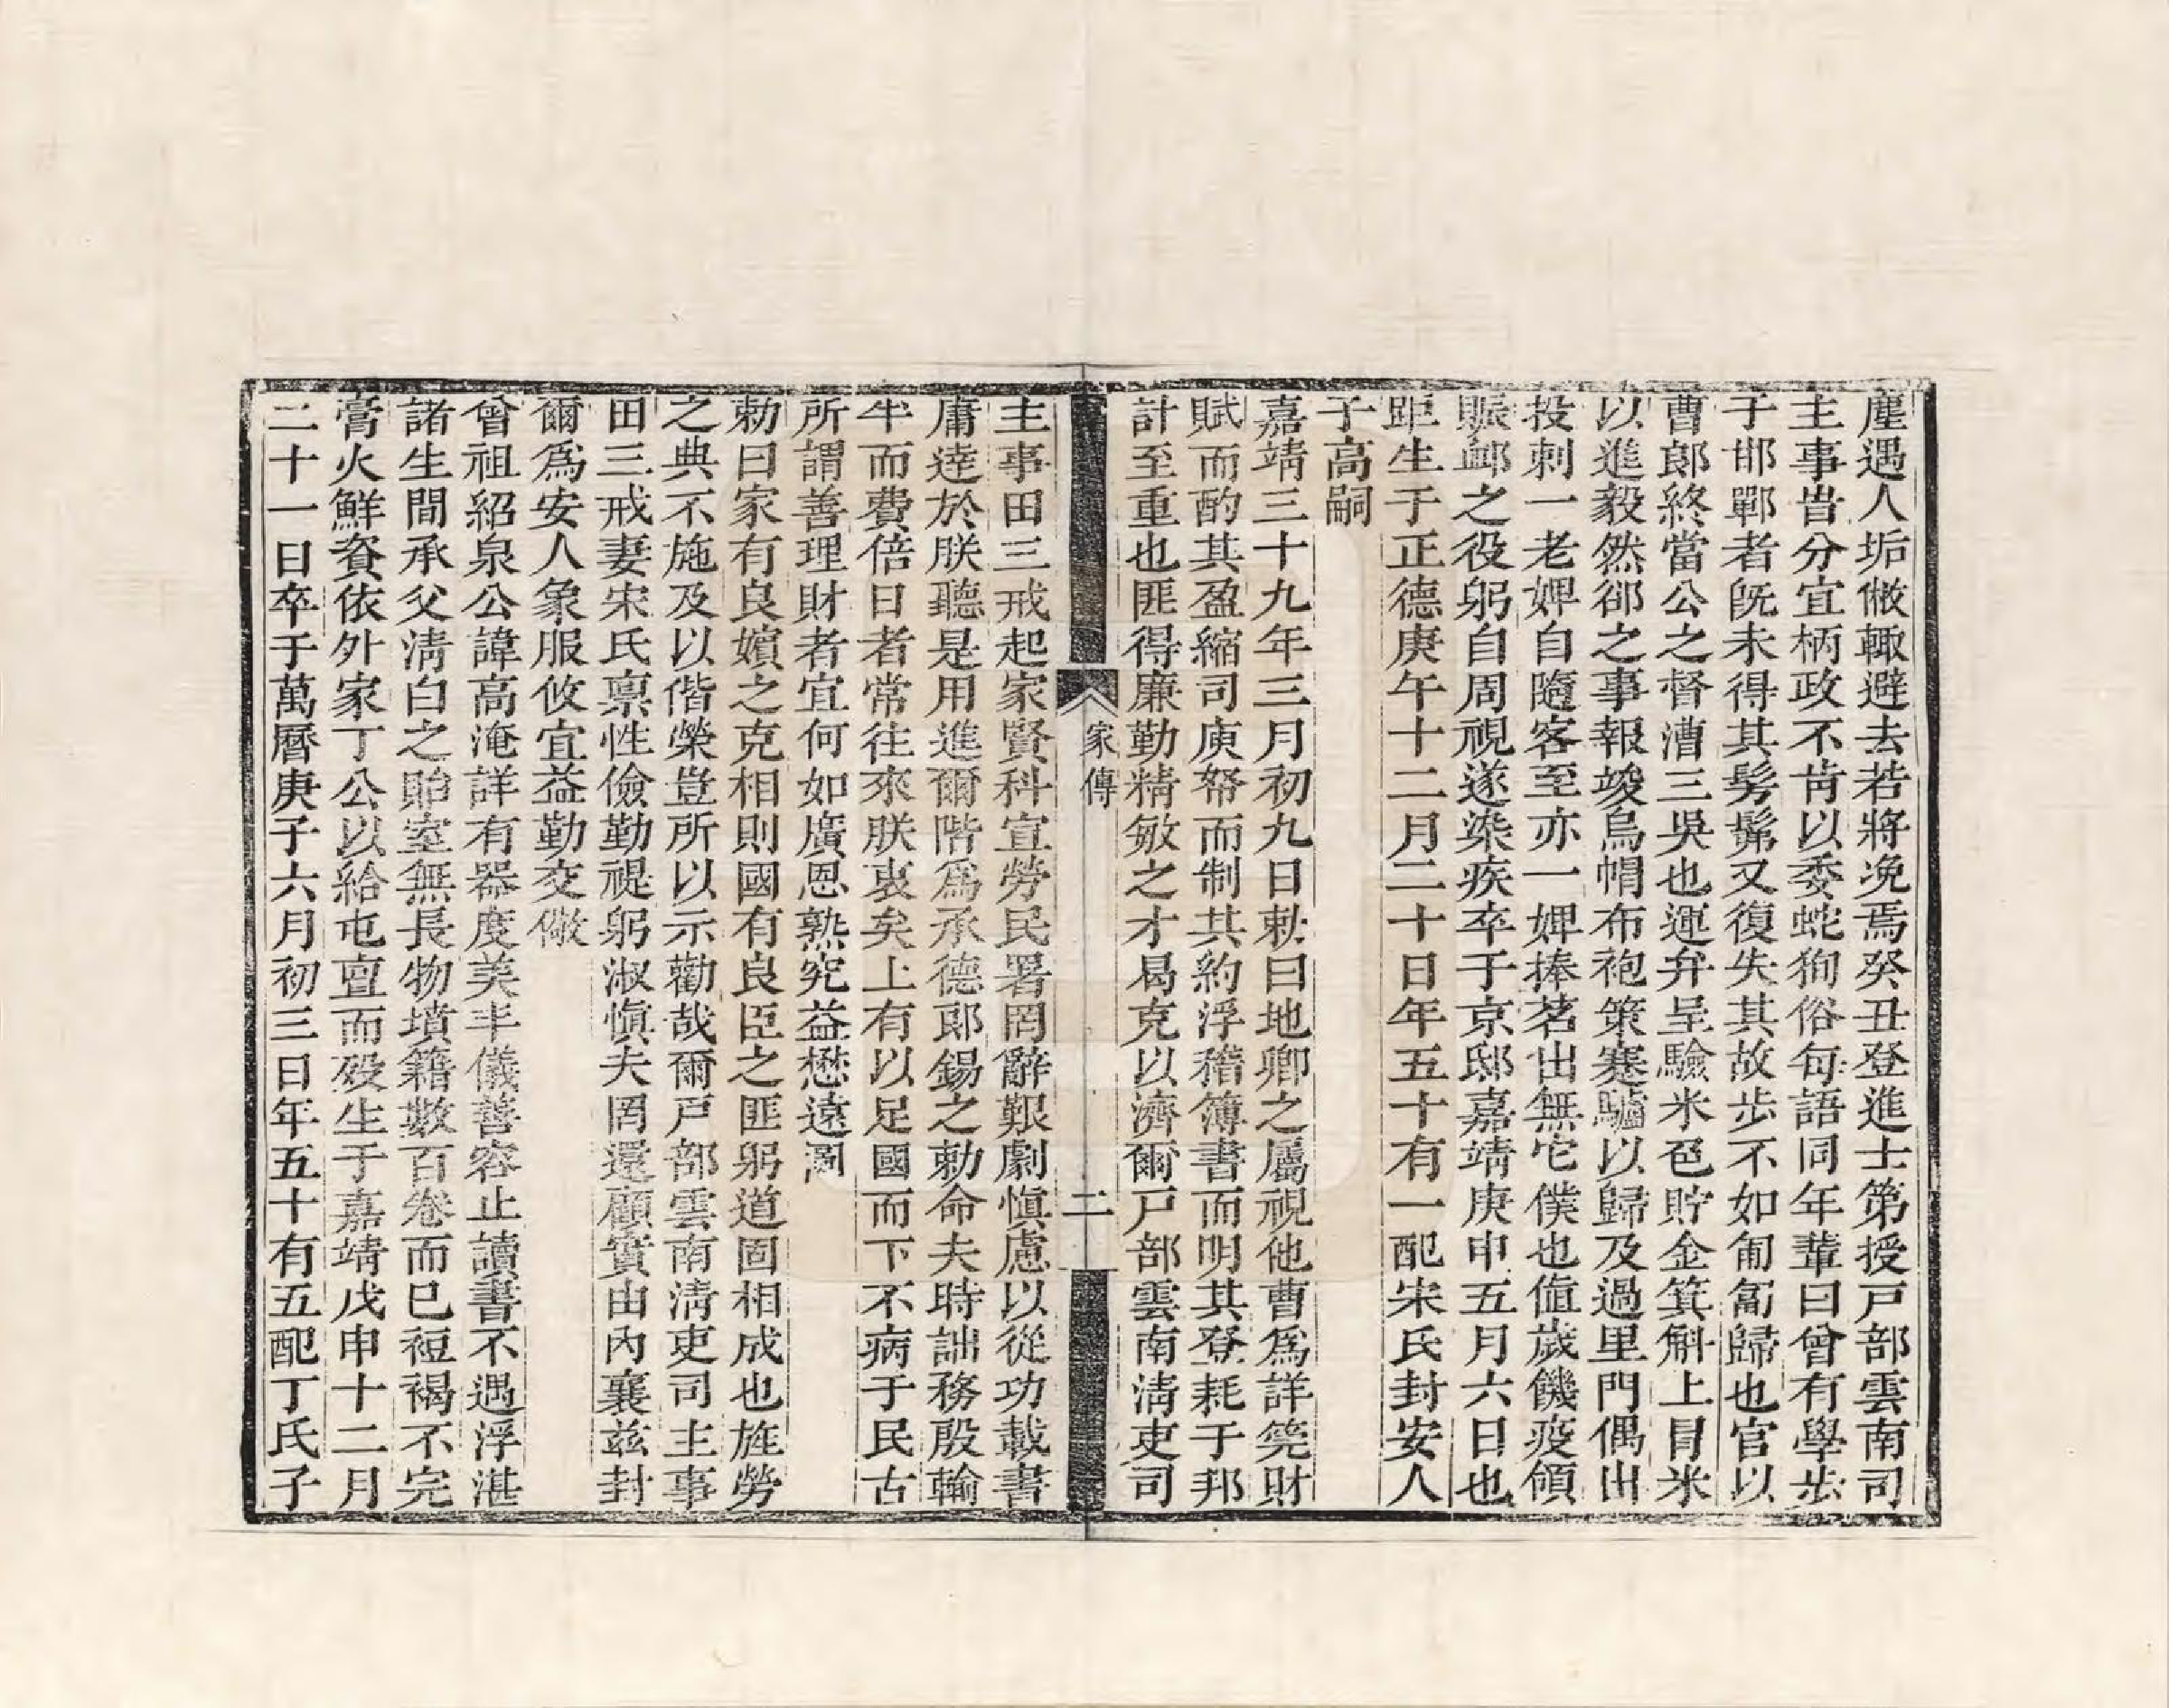 塵遇人垢敝輙避去若將凂焉癸丑登進士第授戸部雲南司
主事昔分宜柄政不肯以委蛇狥俗每語同年輩曰曾有學步
于邯鄲者旣未得其髣髴又復失其故步不如匍匐歸也官以
曹郎終當公之督漕三吳也運弁呈驗米色貯金箕斛上冒米
以進毅然郤之事報竣烏帽布袍策蹇驢以歸及過里門偶出
投刺一老婢自隨客至亦一婢捧茗出無它僕也値歲饑疫領
賑䘏之役躬自周視遂染疾卒于京邸嘉靖庚申五月六日也
距生于正德庚午十二月二十日年五十有一配宋氏封安人
子高嗣
嘉靖三十九年三月初九日敕曰地卿之屬視他曹爲詳筦財
賦而酌其盈縮司庾帑而制其約浮稽簿書而明其登耗于邦
計至重也匪得廉勤精敏之才曷克以濟爾戸部雲南淸吏司
家傳
二
主事田三戒起家賢科宣勞民署罔辭艱劇愼慮以從功載書
庸逹於朕聽是用進爾階爲承德郎錫之勅命夫時詘務殷輸
半而費倍日者常往來朕衷矣上有以足國而下不病于民古
所謂善理財者宜何如廣恩熟究益懋遠圖
勅曰家有良嬪之克相則國有良臣之匪躬道固相成也旌勞
之典不施及以偕榮豈所以示勸哉爾戸部雲南淸吏司主事
田三戒妻宋氏禀性儉勤禔躬淑愼夫罔還顧實由內襄兹封
爾爲安人象服攸宜益勤交儆
曾祖紹泉公諱高淹詳有器度美丰儀善容止讀書不遇浮湛
諸生間承父淸白之貽室無長物墳籍數百卷而巳裋褐不完
膏火鮮資依外家丁公以給屯亶而歿生于嘉靖戊申十二月
二十一日卒于萬曆庚子六月初三日年五十有五配丁氏子